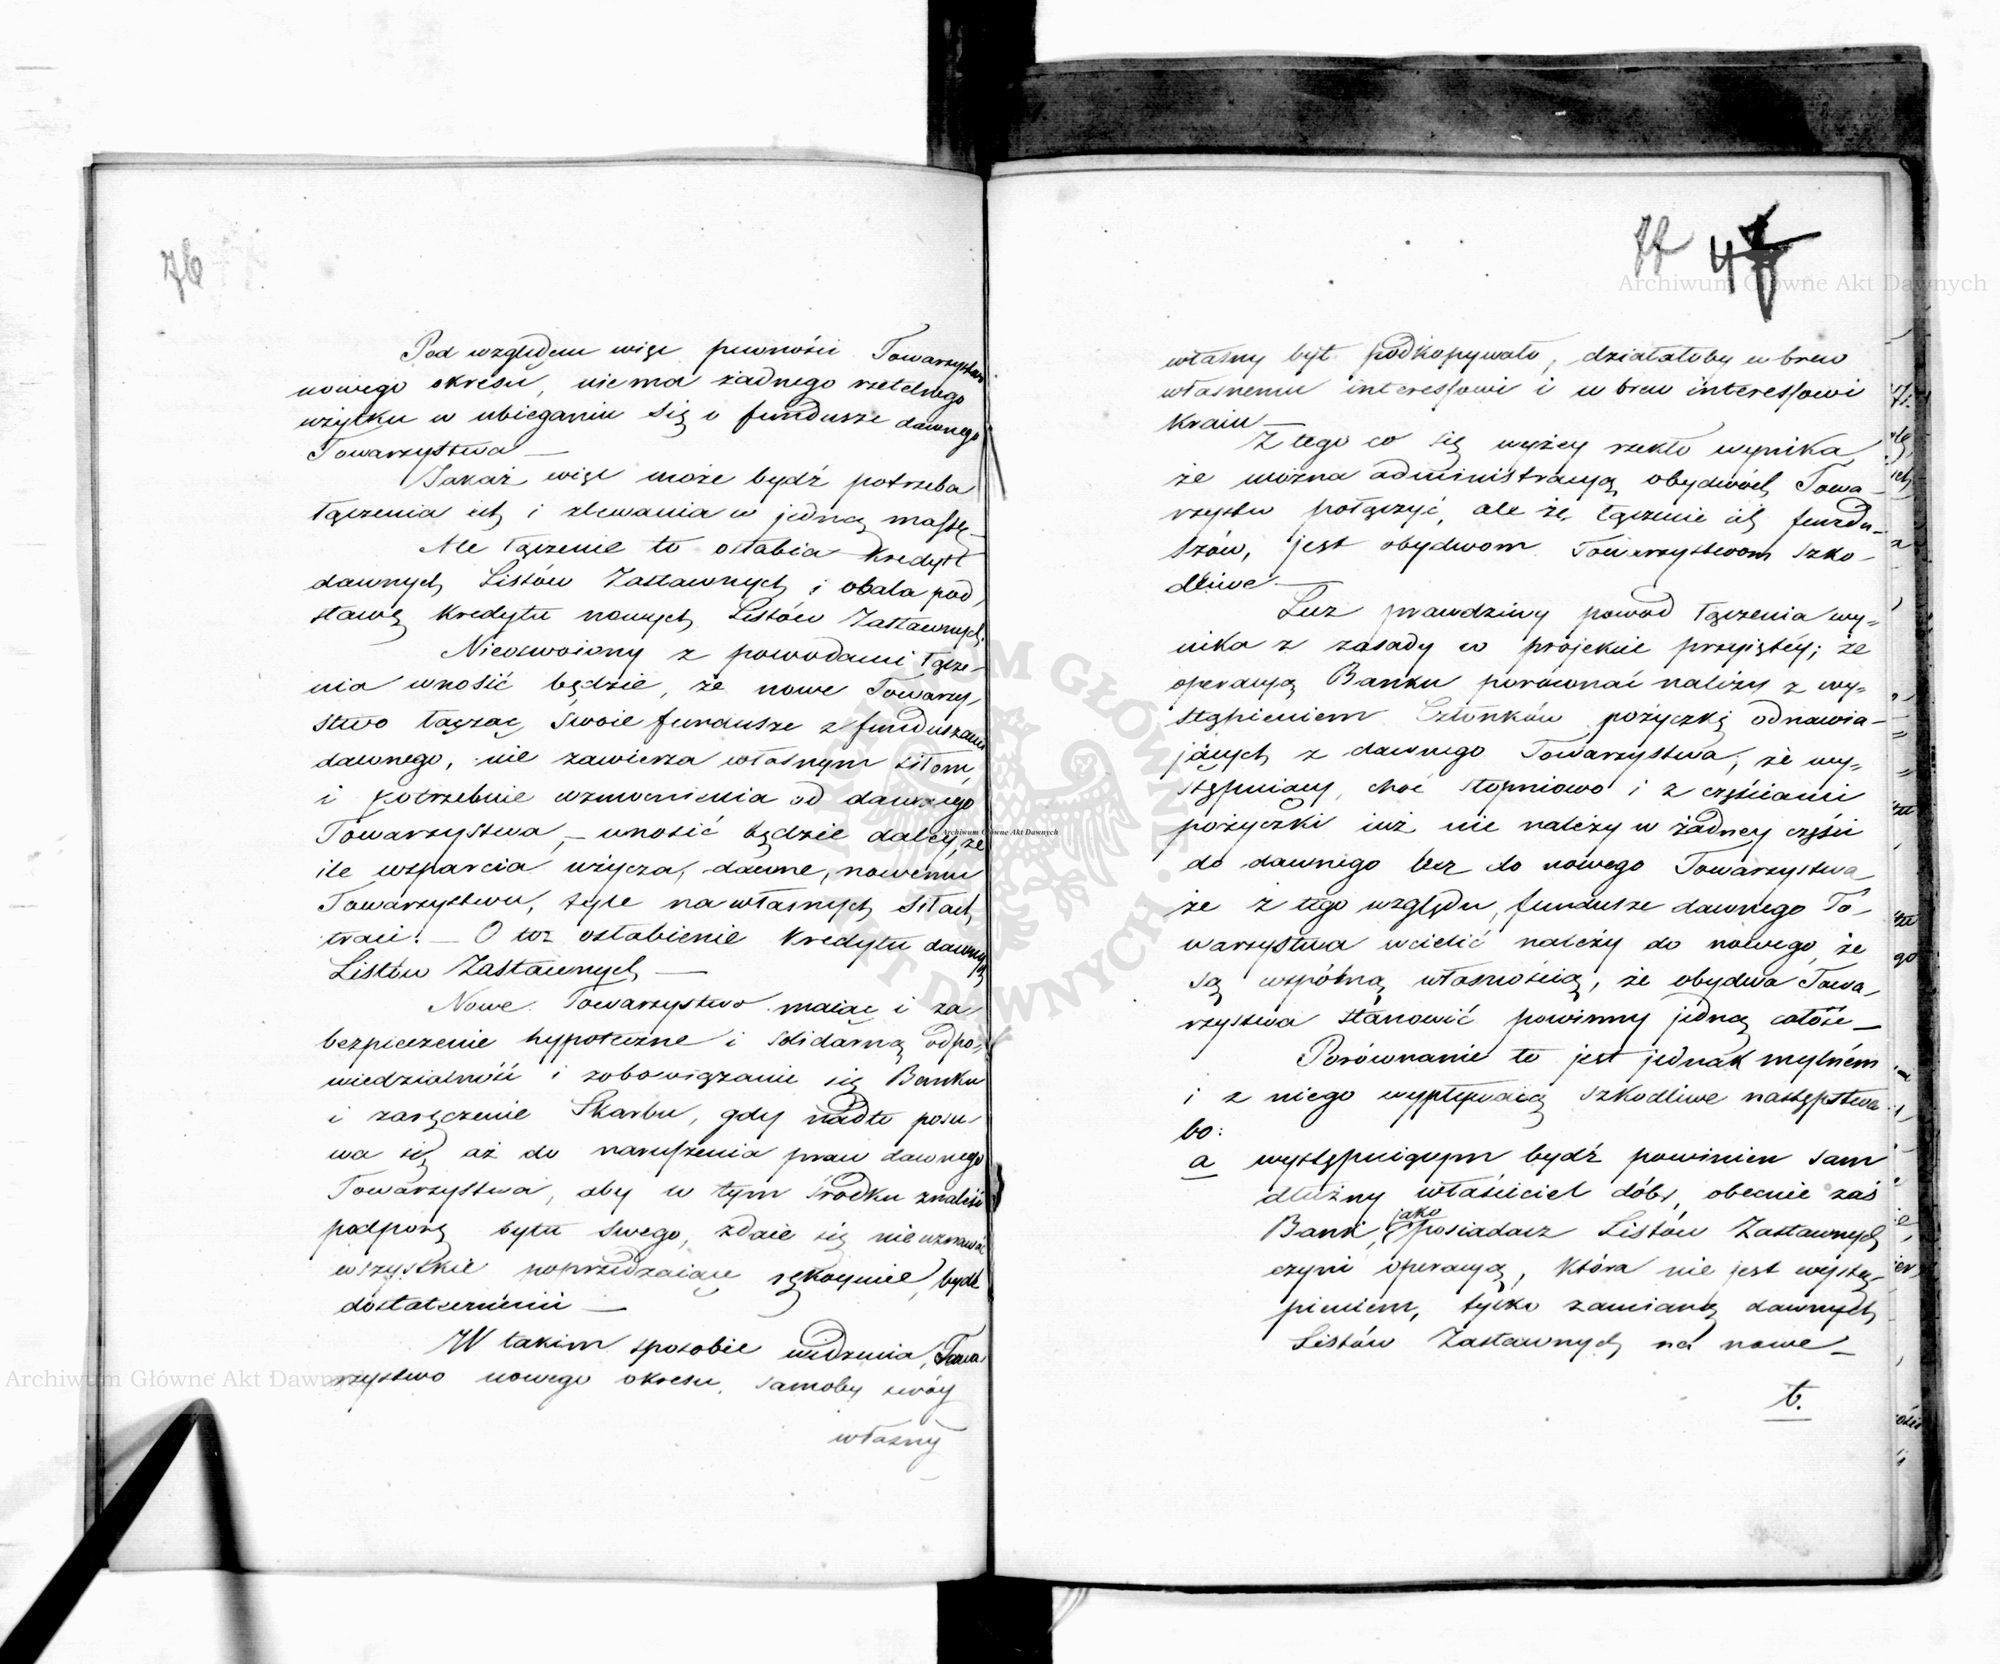 76
Pod względem więc pewności Towarzystwo
nowego okresu, niema żadnego rzetelnego
użytku w ubieganiu się o fundusze dawnego
Towarzystwa —
Jakaż więc może bydź potrzeba
łączenia ich i zlewania w jedną massę —
Ale łączenie to osłabia kredyt
dawnych Listów Zastawnych i obala pod-
stawę kredytu nowych Listów Zastawnych;
Nieoswoiony z powodami łącze-
nia wnosić będzie, że nowe Towarzy-
stwo łącząc swoie fundusze z funduszami
dawnego, nie zawierza własnym siłom,
i potrzebuie wzmocnienia od dawnego
Towarzystwa, — wnosić będzie daley, że
ile wsparcia użycza, dawne, nowemu
Towarzystwu, tyle na własnych siłach
traci. — O toż osłabienie kredytu dawnych
Listów Zastawnych —
Nowe Towarzystwo maiąc i za-
bezpieczenie hypoteczne i solidarną odpo-
wiedzialność i zobowiązanie się Banku
i zaręczenie Skarbu, gdy nadto posu-
wa się aż do naruszenia praw dawnego
Towarzystwa, aby w tym środku znaleść
podporę bytu swego, zdaie się nieuznawać
wszystkie poprzedzaiące rękoymie, bydź
dostatecznemi —
W takim sposobie widzenia, Towa-
rzystwo nowego okresu, samoby swóy
własny
77 47
własny byt podkopywało, działałoby w brew
własnemu interessowi i w brew interessowi
kraiu —
Z tego co się wyżey rzekło wynika,
że można administracyą obydwóch Towa-
rzystw połączyć, ale że, łączenie ich fundu-
szów, jest obydwom Towarzystwom szko-
dliwe —
Lecz prawdziwy powód łączenia wy-
nika z zasady w projekcie przyiętéy; że
operacyą Banku porównać należy z wy-
stąpieniem Członków pożyczkę odnawia-
jących z dawnego Towarzystwa, że wy-
stępuiący, choć stopniowo i z częściami
pożyczki iuż nie należy w żadney części
do dawnego lecz do nowego Towarzystwa
że z tego względu, fundusze dawnego To-
warzystwa wcielić należy do nowego, że
są wspólną własnością, że obydwa Towa-
rzystwa stanowić powinny jedną całość —
Porównanie to jest jednak mylném
i z niego wypływaią szkodliwe następstwa
bo:
a występuiącym bydź powinien sam
dłużny właściciel dóbr, obecnie zaś
jako
Bank, posiadacz Listów Zastawnych
czyni operacyą, która nie jest wystą-
pieniem, tylko zamianą dawnych
Listów Zastawnych na nowe —
b.
Archiwum Główne Akt Dawnych
Archiwum Główne Akt Dawnych
Archiwum Główne Akt Dawnych
ARCHIWUM GŁÓWNE AKT DAWNYCH